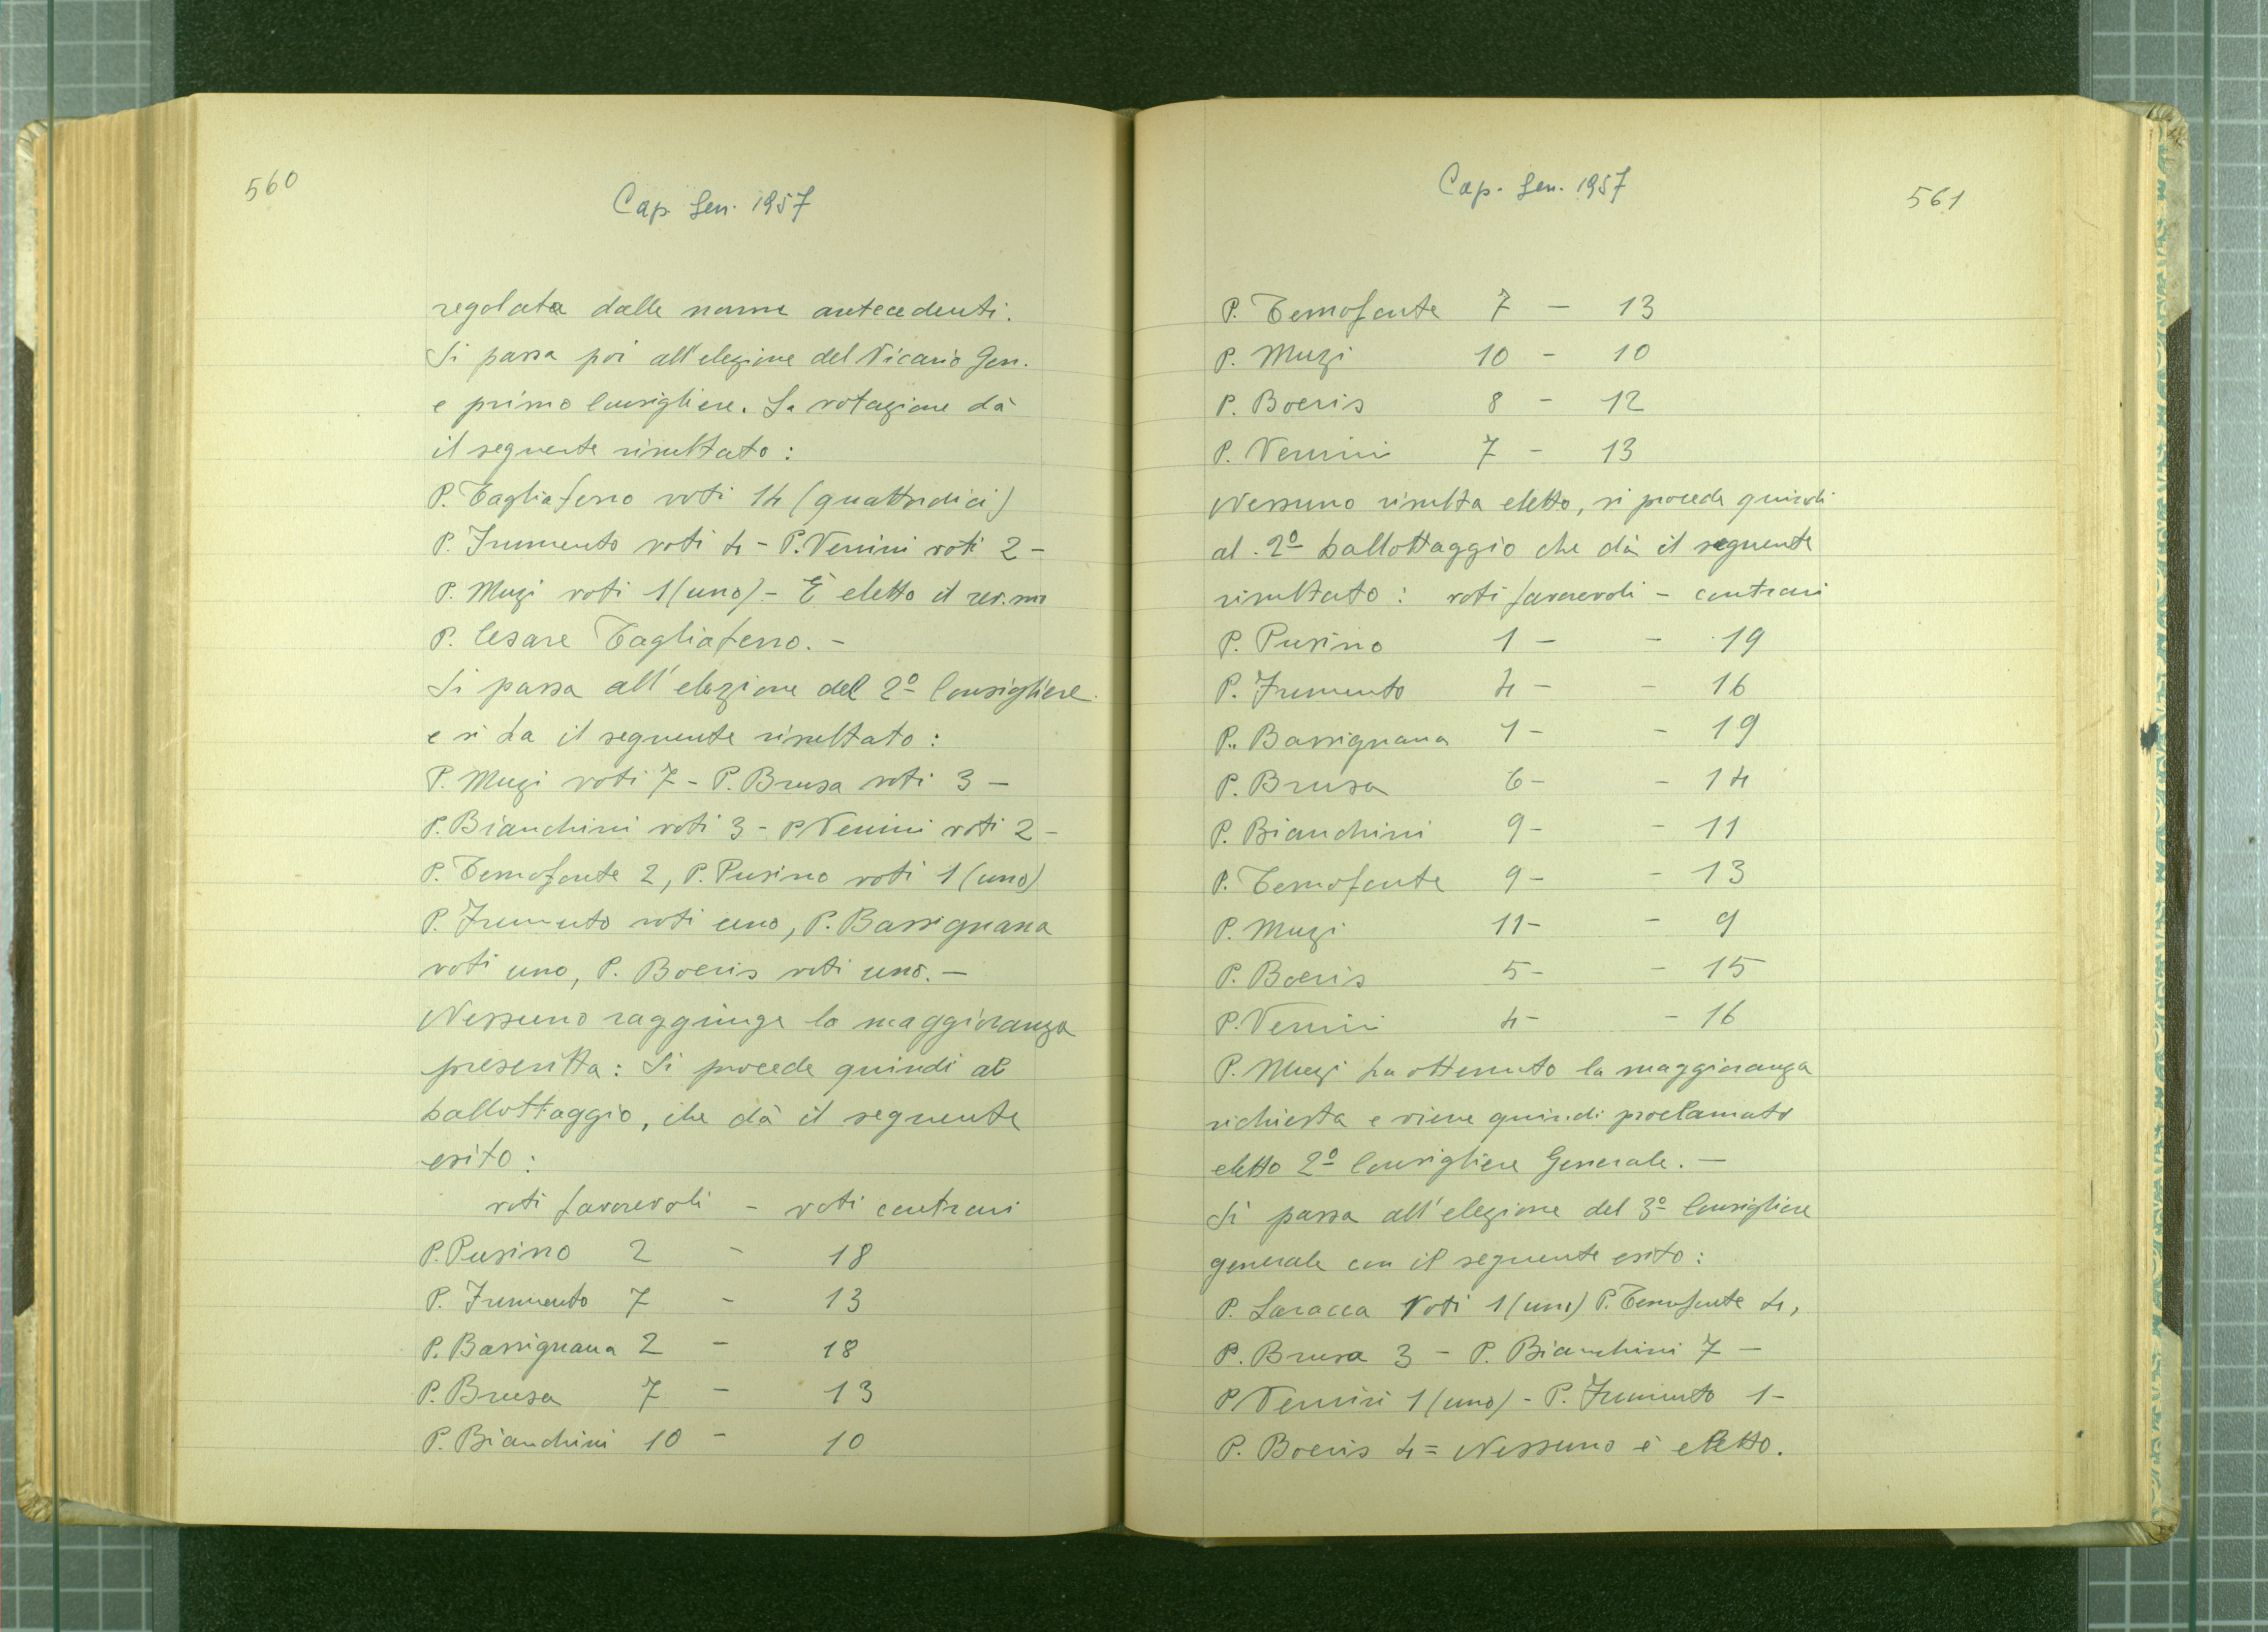 560
Cap. Gen. 1957
regolata dalle norme antecedenti.
Si passa poi all'elezione del Vicario Gen.
e primo Consigliere. La votazione dà
il seguente risultato:
P. Tagliaferro voti 14 (quattrodici)
P. Frumento voti 4 - P. Venini voti 2 -
P. Muzi voti 1 (uno) - È eletto il rev.mo
P. Cesare Tagliaferro. -
Si passa all'elezione del 2º Consigliere
e si ha il seguente risultato:
P. Muzi voti 7 - P. Brusa voti 3 -
P. Bianchini voti 3 - P. Venini voti 2 -
P. Temofonte 2, P. Pusino voti 1 (uno)
P. Frumento voti uno, P. Bassignana
voti uno, P. Boeris voti uno. -
Nessuno raggiunge la maggioranza
prescritta: Si procede quindi al
ballottaggio, che dà il seguente
esito:
voti favorevoli - voti contrari
P. Pusino 2 - 18
P. Frumento 7 - 13
P. Bassignana 2 - 18
P. Brusa 7 - 13
P. Bianchini 10 - 10
Cap. Gen. 1957
561
P. Temofonte 7 - 13
P. Muzi 10 - 10
P. Boeris 8 - 12
P. Venini 7 - 13
Nessuno risulta eletto, si procede quindi
al 2º ballottaggio che dà il seguente
risultato: voti favorevoli - contrari
P. Pusino 1 - - 19
P. Frumento 4 - - 16
P. Bassignana 1 - - 19
P. Brusa 6 - - 14
P. Bianchini 9 - - 11
P. Temofonte 9 - - 13
P. Muzi 11 - - 9
P. Boeris 5 - - 15
P. Venini 4 - - 16
P. Muzi ha ottenuto la maggioranza
richiesta e viene quindi proclamato
eletto 2º Consigliere Generale. -
Si passa all'elezione del 3º Consigliere
generale con il seguente esito:
P. Laracca Voti 1 (uno) P. Temofonte 4,
P. Brusa 3 - P. Bianchini 7 -
P. Venini 1 (uno) - P. Frumento 1 -
P. Boeris 4 = Nessuno è eletto.